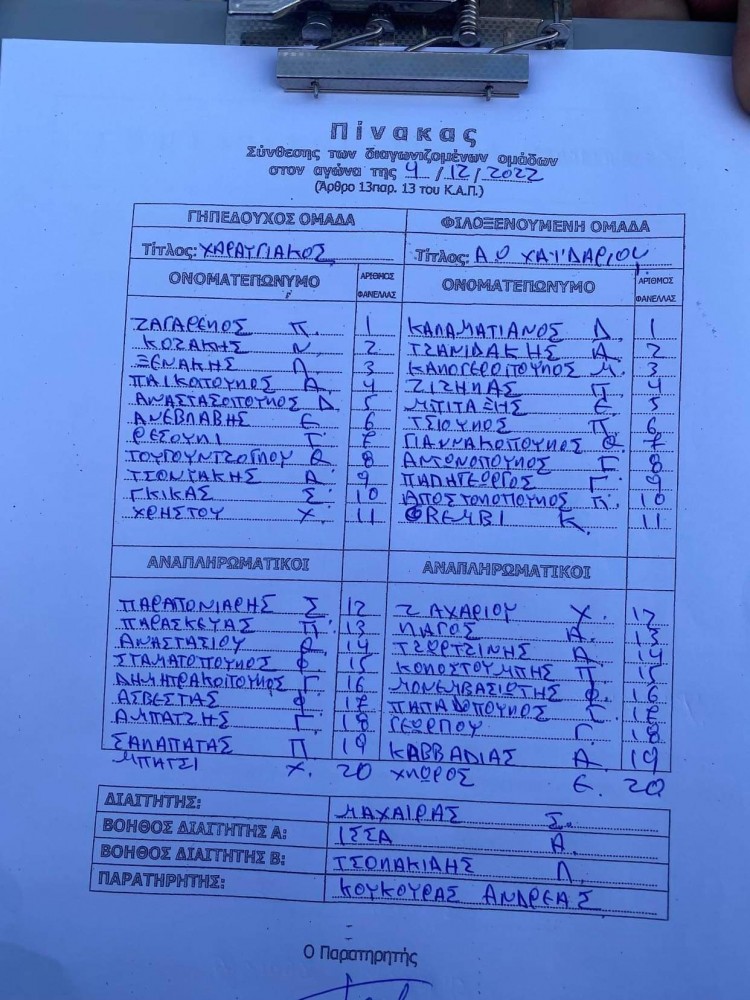 Πίνακας
Σύνθεσης των διαγωνιζομένων ομάδων
στον αγώνα της 4/12/2022
(Άρθρο 13παρ. 13 του Κ.Α.Π.)
ΓΗΠΕΔΟΥΧΟΣ ΟΜΑΔΑ ΦΙΛΟΞΕΝΟΥΜΕΝΗ ΟΜΑΔΑ
Τίτλος: ΧΑΡΑΥΓΙΑΚΟΣ Τίτλος: Α.Ο ΧΑΪΔΑΡΙΟΥ
ΟΝΟΜΑΤΕΠΩΝΥΜΟ ΑΡΙΘΜΟΣ ΦΑΝΕΛΛΑΣ ΟΝΟΜΑΤΕΠΩΝΥΜΟ ΑΡΙΘΜΟΣ ΦΑΝΕΛΛΑΣ
ΖΑΓΑΡΕΛΟΣ Π. 1 ΚΑΛΑΜΑΤΙΑΝΟΣ Δ. 1
ΚΟΖΑΚΗΣ Ν. 2 ΤΖΑΝΙΔΑΚΗΣ Α. 2
ΞΕΝΑΚΗΣ Λ. 3 ΚΑΛΟΓΕΡΟΠΟΥΛΟΣ Μ. 3
ΠΑΙΚΟΠΟΥΛΟΣ Α. 4 ΖΙΖΗΛΑΣ Π. 4
ΑΝΑΣΤΑΣΟΠΟΥΛΟΣ Δ. 5 ΜΠΙΤΑΞΗΣ Ε. 5
ΑΝΕΒΛΑΒΗΣ Ε 6 ΤΣΙΟΥΛΟΣ Π. 6
ΦΕΣΟΥΛΙ Γ. 7 ΓΙΑΝΝΑΚΟΠΟΥΛΟΣ Θ. 7
ΤΟΥΓΟΥΝΤΖΟΓΛΟΥ Θ. 8 ΑΝΤΩΝΟΠΟΥΛΟΣ Γ. 8
ΤΣΟΝΤΑΚΗΣ Α. 9 ΠΑΛΗΓΕΩΡΓΟΣ Γ. 9
ΓΚΙΚΑΣ Σ. 10 ΑΠΟΣΤΟΛΟΠΟΥΛΟΣ Π. 10
ΧΡΗΣΤΟΥ Χ. 11 Κ. 11
ΑΝΑΠΛΗΡΩΜΑΤΙΚΟΙ ΑΝΑΠΛΗΡΩΜΑΤΙΚΟΙ
ΠΑΡΑΠΟΝΙΑΡΗΣ Σ 12 ΖΑΧΑΡΙΟΥ Χ. 12
ΠΑΡΑΣΚΕΥΑΣ Π. 13 ΛΙΑΓΟΣ Α. 13
ΑΝΑΣΤΑΣΙΟΥ Θ. 14 ΤΖΩΡΤΖΙΝΗΣ Α. 14
ΣΤΑΜΑΤΟΠΟΥΛΟΣ Φ. 15 ΚΟΛΟΣΤΟΥΜΠΗΣ Π. 15
ΔΗΜΗΤΡΑΚΟΠΟΥΛΟΣ Γ. 16 ΜΟΝΕΜΒΑΣΙΩΤΗΣ Φ. 16
ΑΣΒΕΣΤΑΣ Φ. 17 ΠΑΠΑΔΟΠΟΥΛΟΣ 17
ΑΜΠΑΤΖΗΣ Γ. 18 ΓΕΩΡΓΙΟΥ Γ. 18
ΣΑΛΑΠΑΤΑΣ Π. 19 ΚΑΒΒΑΔΙΑΣ Α. 19
ΜΠΑΤΣΙ Χ. 20 ΧΛΩΡΟΣ Ε. 20
ΔΙΑΙΤΗΤΗΣ: ΜΑΧΑΙΡΑΣ Σ.
ΒΟΗΘΟΣ ΔΙΑΙΤΗΤΗΣ Α: ΙΣΣΑ Α.
ΒΟΗΘΟΣ ΔΙΑΙΤΗΤΗΣ Β: ΤΣΟΛΑΚΙΔΗΣ Λ.
ΠΑΡΑΤΗΡΗΤΗΣ: ΚΟΥΚΟΥΡΑΣ ΑΝΔΡΕΑΣ
Ο Παρατηρητής